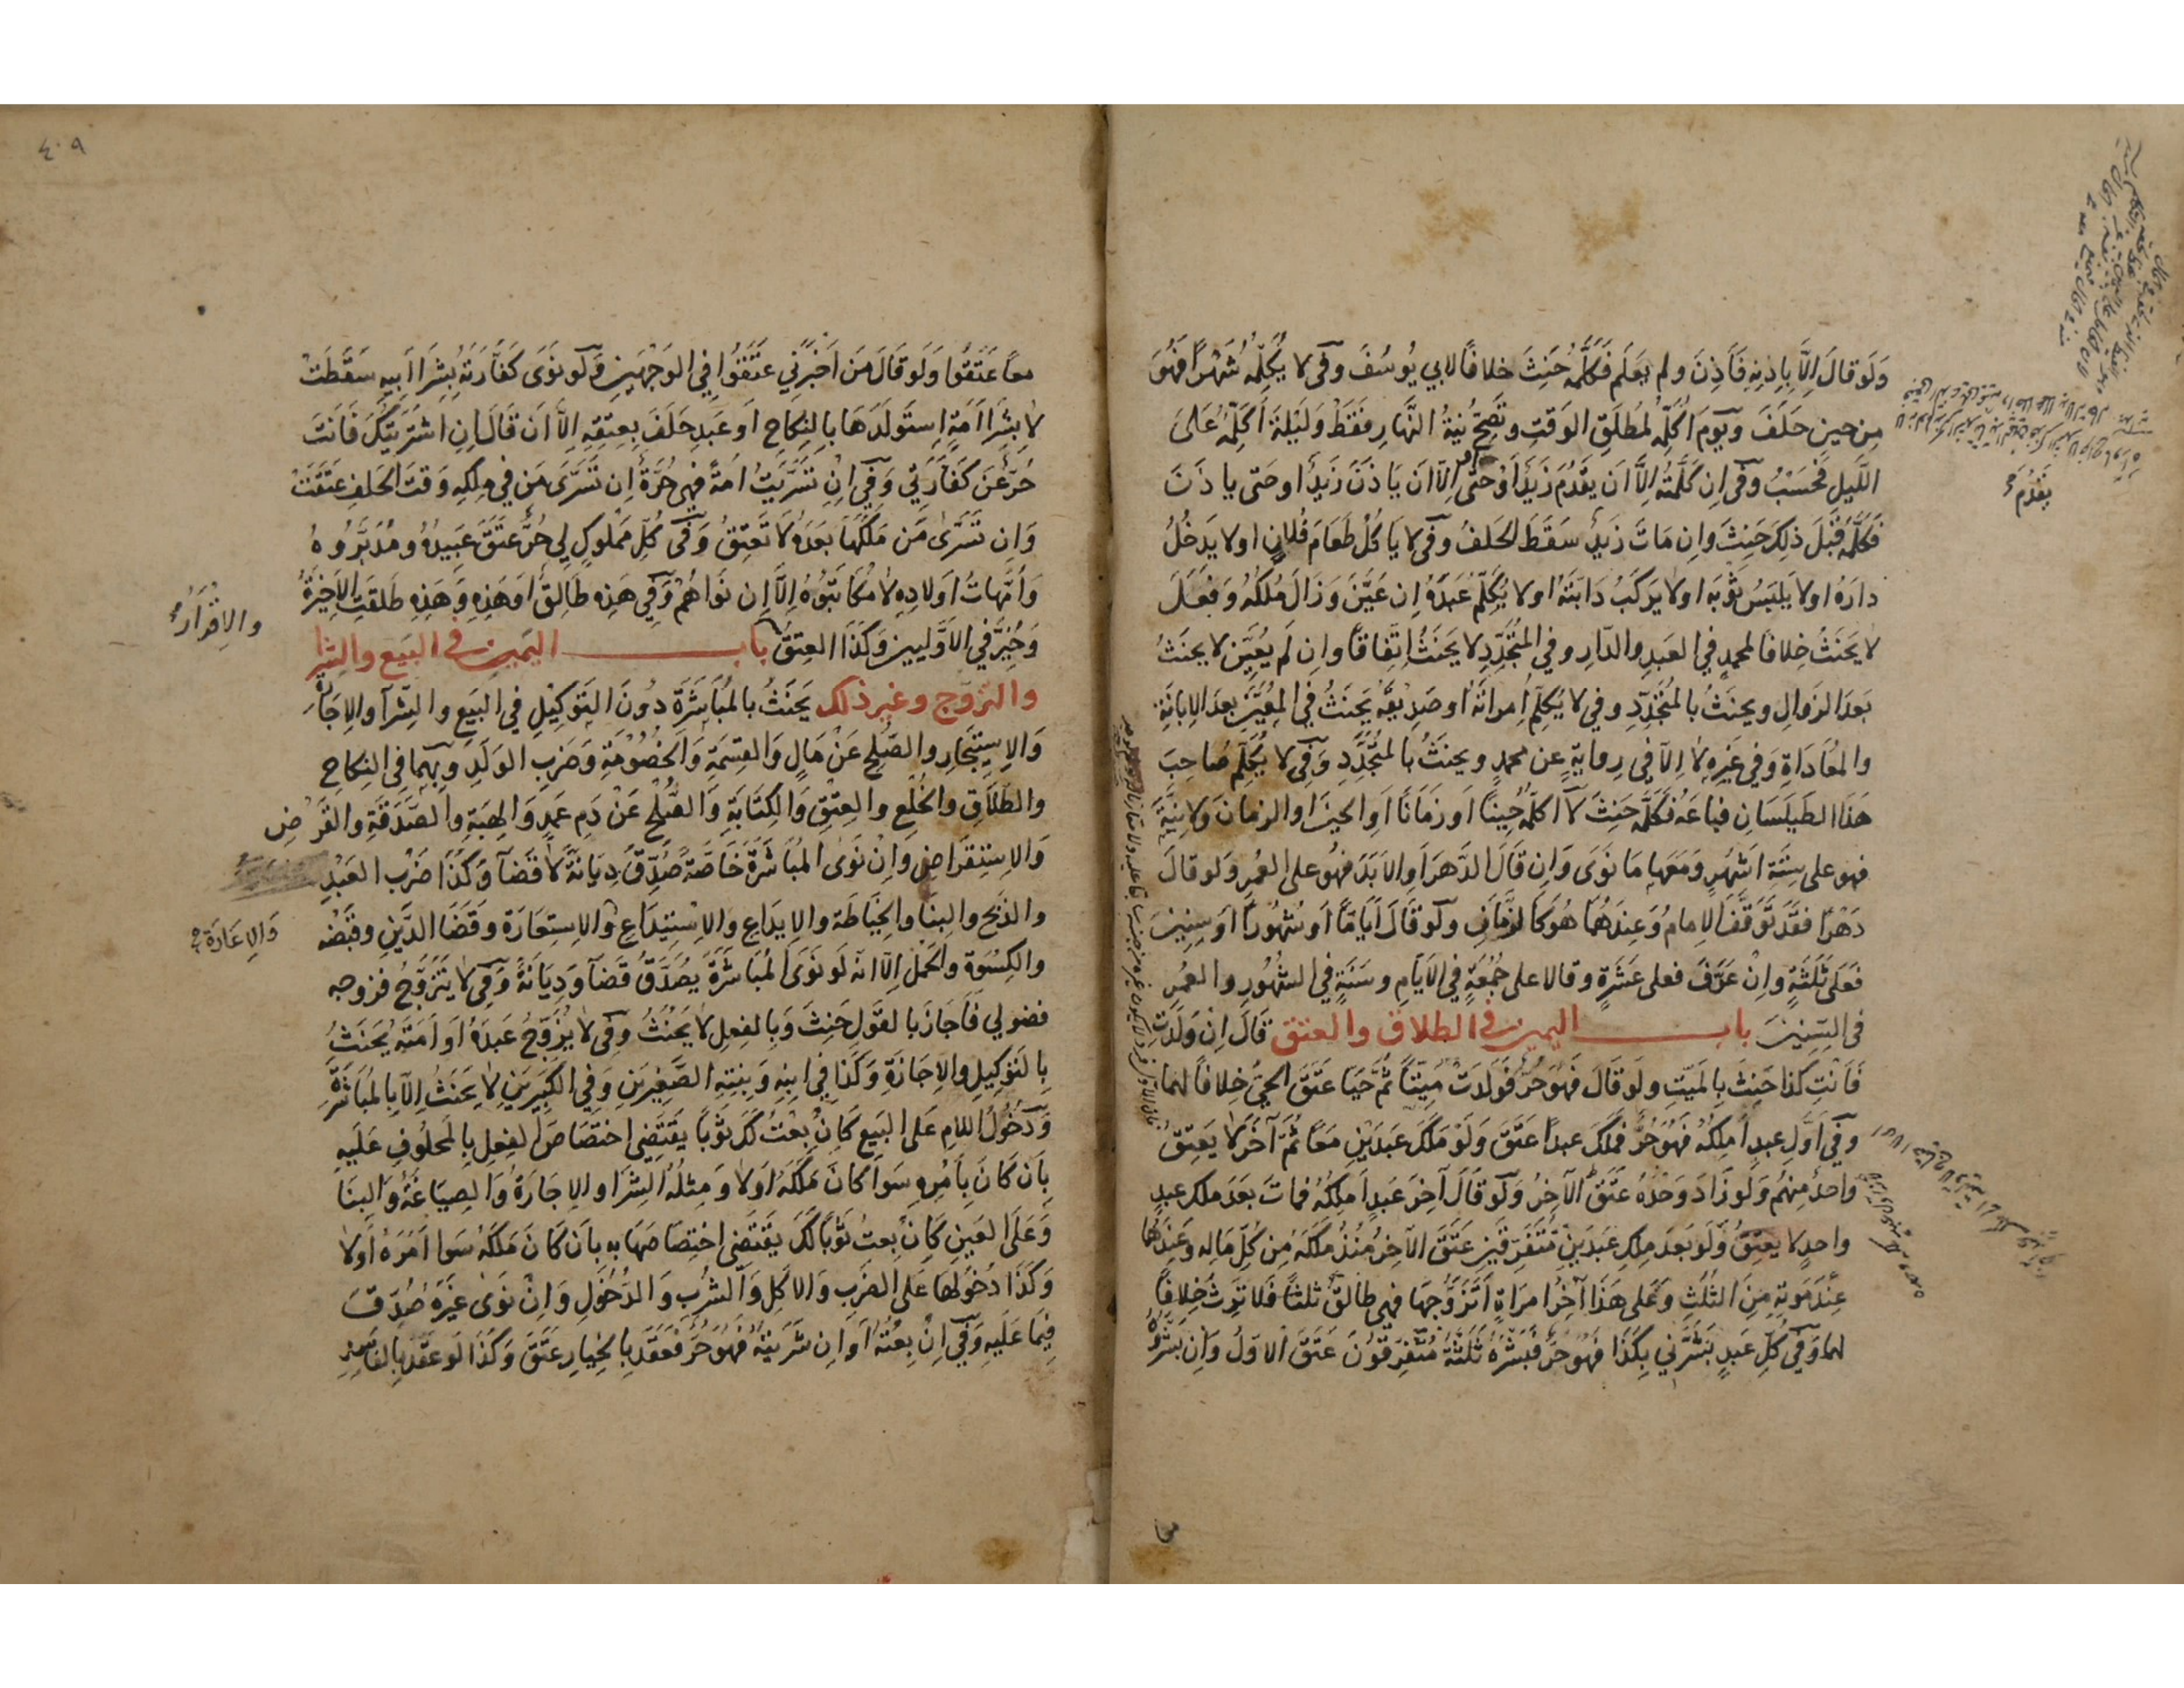 ولو قال إلا بإذنه فأذن ولم يعلم فكلمه حنث خلافا لابي يوسف وفي لا يكلمه شهرا فهو
من حين حلف ويوم اكلمه لمطلق الوقت وتصح نية النهار فقط وليلة أكلمه على
الليل فحسب وفي ان كلمته إلا أن يقدم زيد أو حتى أو إلا ان ياذن زيد او حتى ياذن
فكلمه قبل ذلك حنث وان مات زيد سقط الحلف وفي لا ياكل طعام فلان او لا يدخل
داره او لا يلبس ثوبه او لا يركب دابته او لا يكلم عبده إن عين وزال ملكه وفعل
لا يحنث خلافا لمحمد في العبد والدار وفي المتجدد لا يحنث إتفاقا وان لم يعين لا يحنث
بعد الزوال ويحنث بالمتجدد وفي لا يكلم إمرأته أو صديقه يحنث في المعين بعد الابانة
والمعاداة وفي غيره لا إلا في رواية عن محمد ويحنث بالمتجدد وفي لا يكلم صاحب
هذا الطيلسان فباعه فكلمه حنث لا اكلمه حينا أو زمانا أو الحين او الزمان ولا نية
فهو على ستة اشهر ومعها ما نوى وان قال الدهر او الابد فهو على العمر ولو قال
دهرا فقد توقف الامام وعندهما هو كالزمان ولو قال أياما أو شهورا أو سنين
فعلى ثلثة وإن عرف فعلى عشرة وقالا على جمعة في الايام وسنة في الشهور والعمر
في السنين باب اليمين في الطلاق والعتق قال إن ولدت
فأنت كذا حنث بالميت ولو قال فهو حر فولدت ميتا ثم حيا عتق الحي خلافا لهما
وفي أول عبد أملكه فهو حر فملك عبدا عتق ولو ملك عبدين معا ثم آخر لا يعتق
واحد منهم ولو زاد وحده عتق الآخر ولو قال آخر عبد أملكه فمات بعد ملك عبد
واحد لا يعتق ولو بعد ملك عبدين متفرقين عتق الآخر منذ ملكه من كل ماله وعندهما
عند موته من الثلث وعلى هذا آخر امرأة أتزوجها فهي طالق ثلثا فلا ترث خلافا
لهما وفي كل عبد بشرني بكذا فهو حر فبشره ثلثة متفرقون عتق الاول وان بشروه
يقدم
معا عتقوا ولو قال من أخبرني عتقوا في الوجهين ولو نوى كفارته بشرا أبيه سقطت
لا بشرا أمة إستولدها بالنكاح أو عبد حلف بعتقه إلا أن قال إن اشتريتك فأنت
حر عن كفارتي وفي إن تسريت أمة فهي حرة إن تسرى من في ملكه وقت الحلف عتقت
وان تسرى من ملكها بعده لا تعتق وفي كل مملوك لي حر عتق عبيده ومدبروه
وأمهات اولاده لا مكاتبوه إلا إن نواهم وفي هذه طالق أو هذه وهذه طلقت الاخيرة
وخير في الاوليين وكذا العتق باب اليمين في البيع والشرا
والتزوج وغير ذلك يحنث بالمباشرة دون التوكيل في البيع والشرآ والاجارة
والاستيجار والصلح عن مال والقسمة والخصومة وضرب الولد وبهما في النكاح
والطلاق والخلع والعتق والكتابة والصلح عن دم عمد والهبة والصدقة والقرض
والاستقراض وإن نوى المباشرة خاصة صدق ديانة لا قضآ وكذا ضرب العبد
والذبح والبنا والخياطة والايداع والاستيداع والاستعارة وقضا الدين وقبضه
والكسوة والحمل إلا انه لو نوى المباشرة يصدق قضآ وديانة وفي لا يتزوج فزوجه
فضولي فأجاز بالقول حنث وبالفعل لا يحنث وفي لا يزوج عبده أو أمته يحنث
بالتوكيل والاجازة وكذا في ابنه وبنته الصغيرين وفي الكبيرين لا يحنث إلا بالمباشرة
ودخول اللام على البيع كان بعت لك ثوبا يقتضي اختصاص الفعل بالمحلوف عليه
بأن كان بأمره سوا كان ملكه أولا ومثله الشرا والاجارة والصياغة والبنا
وعلى العين كان بعت ثوبا لك يقتضي اختصاصها به بان كان ملكه سوا أمره أولا
وكذا دخولها على الضرب والاكل والشرب والدخول وإن نوى غيره صدق
فيما عليه وفي إن بعته أو ان شريته فهو حر فعقد بالخيار عتق وكذا لو عقد بالفاسد
والإقرار
والإعارة
٤٠٩